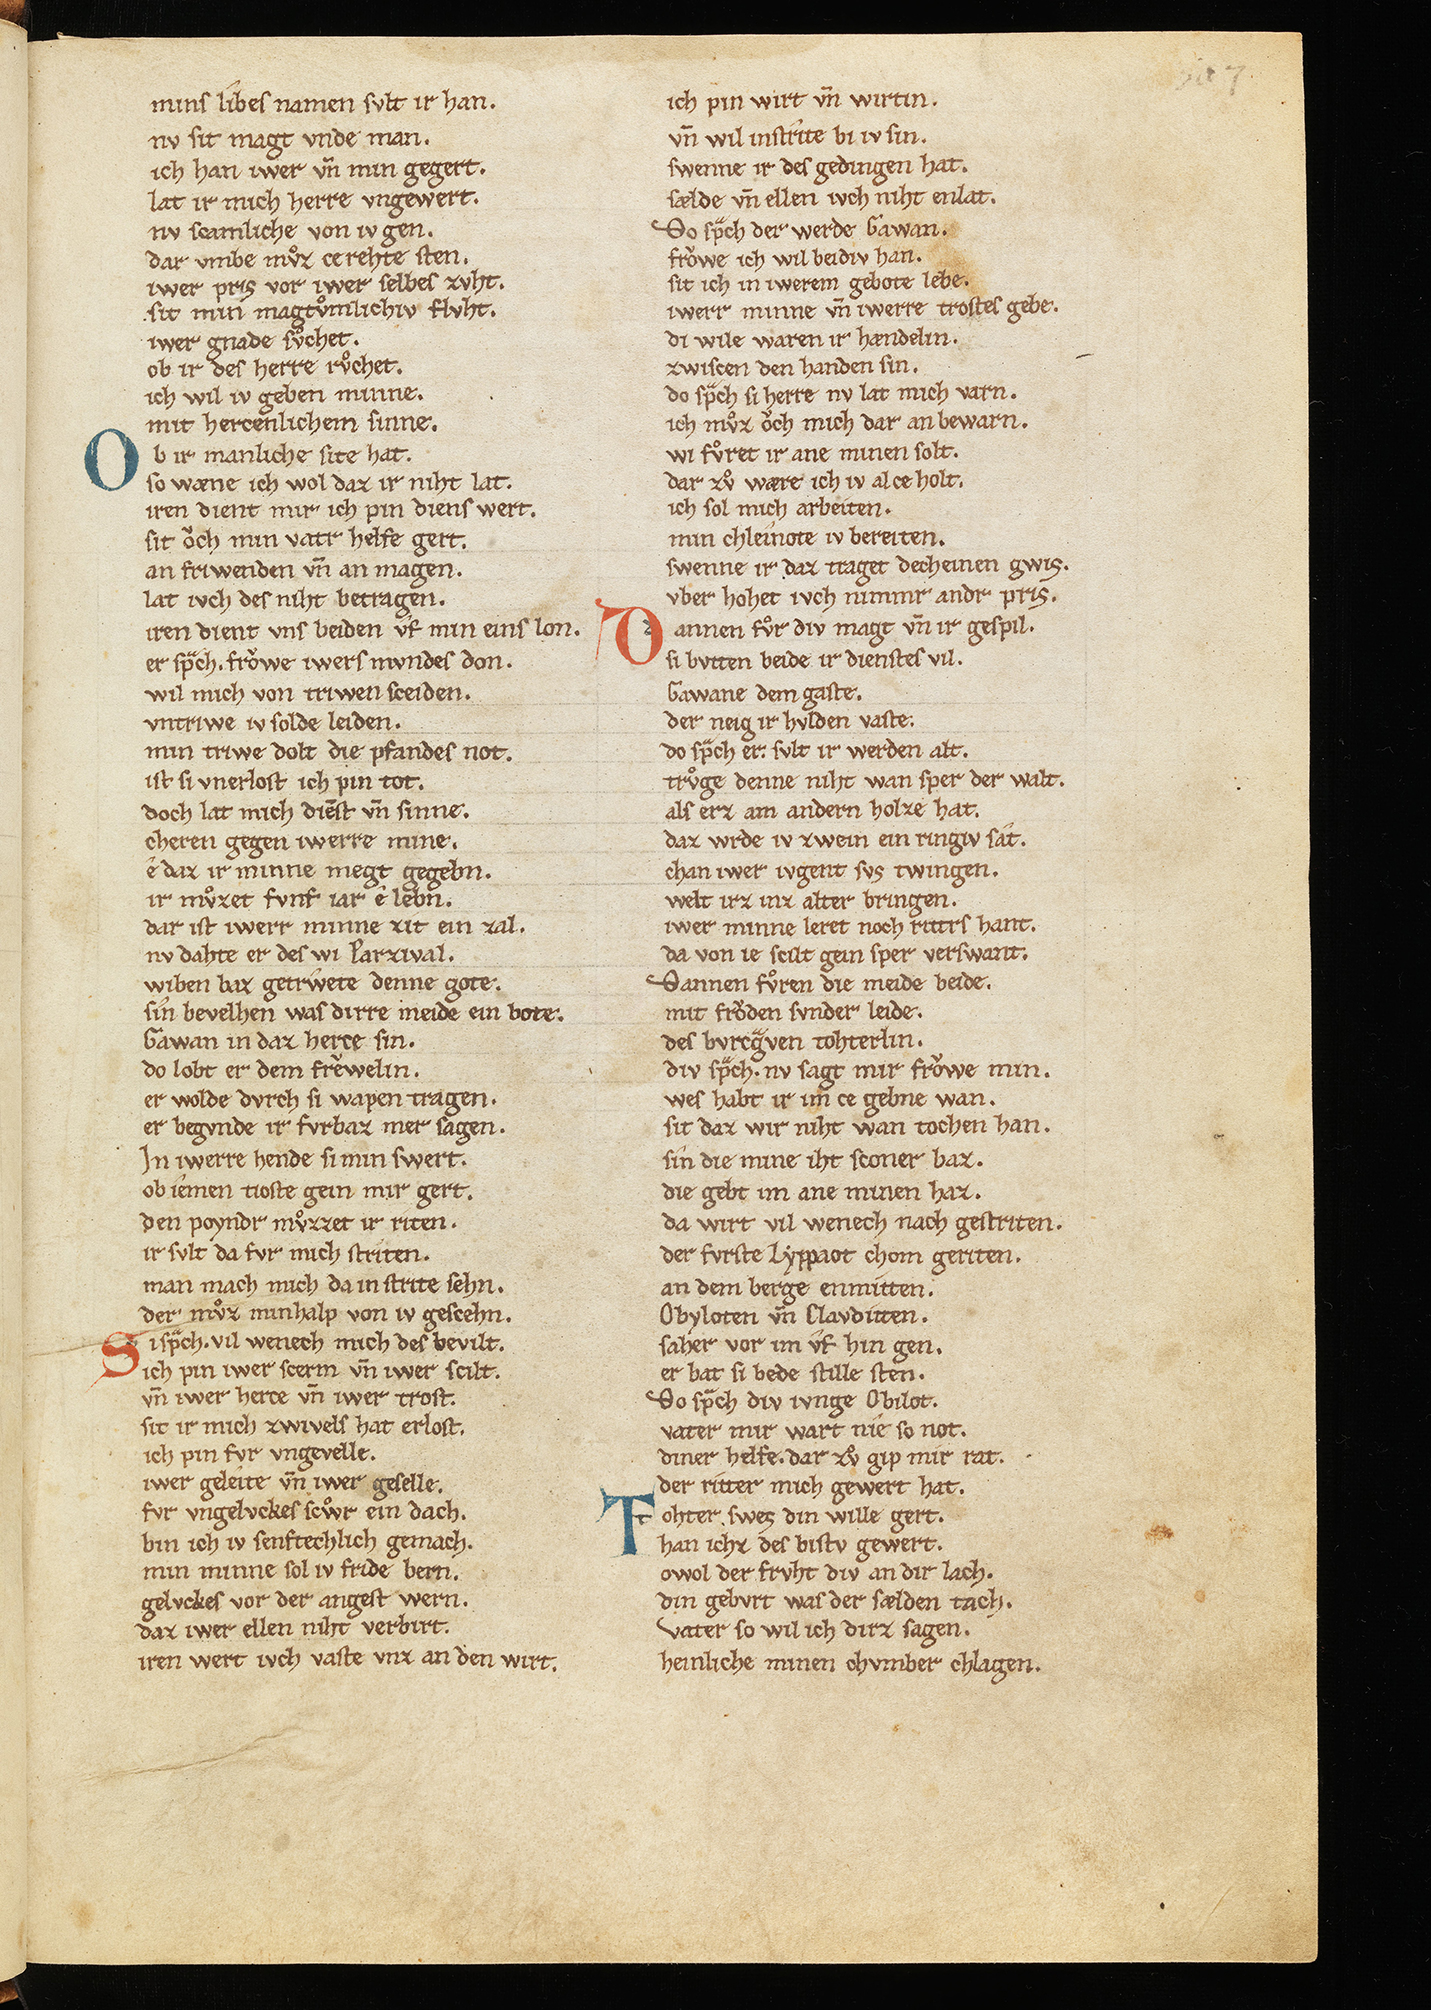 mins libes namen svlt ir han.
nv sit magt vnde man.
ich han iwer vn̄ min gegert.
lat ir mich herre vngewert.
nv scamliche von iv gen.
dar vmbe mvͦz ce rehte sten.
iwer pris vor iwer selbes zvht.
sit min magtvͦmlichiv flvht.
iwer gnade svͦchet.
ob ir des herre rvͦchet.
ich wil iv geben minne.
mit hercenlichem sinne.
Ob ir manliche site hat.
so wæne ich wol daz ir niht lat.
iren dient mir ich pin diens wert.
sit oͮch min vatr helfe gert.
an friwenden vn̄ an magen.
lat ivch des niht betragen.
iren dient vns beiden vf min eins lon.
er spͣch. froͮwe iwers mvndes don.
wil mich von triwen sceiden.
vntriwe iv solde leiden.
min triwe dolt die pfandes not.
ist si vnerlost ich pin tot.
doch lat mich diēst vn̄ sinne.
cheren gegen iwerre mine.
ê daz ir minne megt gegebn.
ir mvͦzet fvnf iar ê lebn.
dar ist iwerr minne zit ein zal.
nv dahte er des wi Parzival.
wiben baz getrŵete denne gote.
sin bevelhen was dirre meide ein bote.
Gawan in daz herce sin.
do lobt er dem freͮwelin.
er wolde dvrch si wapen tragen.
er begvnde ir fvrbaz mer sagen.
In iwerre hende si min swert.
ob iemen tioste gein mir gert.
den poyndr mvͦzzet ir riten.
ir svlt da fvr mich striten.
man mach mich da in strite sehn.
der mvͦz minhalp von iv gescehn.
Si spͣch. vil wenech mich des bevilt.
ich pin iwer scerm vn̄ iwer scilt.
vn̄ iwer herce vn̄ iwer trost.
sit ir mich zwivels hat erlost.
ich pin fvr vngevelle.
iwer geleite vn̄ iwer geselle.
fvr vngelvckes scvͦr ein dach.
bin ich iv senftechlich gemach.
min minne sol iv fride bern.
gelvckes vor der angest wern.
daz iwer ellen niht verbirt.
iren wert ivch vaste vnz an den wirt.
ich pin wirt vn̄ wirtin.
vn̄ wil in strite bi iv sin.
swenne ir des gedingen hat.
sælde vn̄ ellen ivch niht enlat.
Do spͣch der werde Gawan.
froͮwe ich wil beidiv han.
sit ich in iwerem gebote lebe.
iwerr minne vn̄ iwerre trostes gebe.
di wile waren ir hændelin.
zwiscen den handen sin.
do spͣch si herre nv lat mich varn.
ich mvͦz oͮch mich dar an bewarn.
wi fvͦret ir ane minen solt.
dar zvͦ wære ich iv al ce holt.
ich sol mich arbeiten.
min chleinote iv bereiten.
swenne ir daz traget decheinen gwis.
vber hohet ivch nimmr andr pris.
Dannen fvͦr div magt vn̄ ir gespil.
si bvtten beide ir dienstes vil.
Gawane dem gaste.
der neig ir hvlden vaste.
do spͣch er. svlt ir werden alt.
trvͦge denne niht wan sper der walt.
als erz am andern holze hat.
daz wrde iv zwein ein ringiv sat.
chan iwer ivgent svs twingen.
welt irz inz alter bringen.
iwer minne leret noch ritters hant.
da von ie scilt gein sper verswant.
Dannen fvͦren die meide beide.
mit froͮden svnder leide.
des bvrcgͣven tohterlin.
div spͣch. nv sagt mir froͮwe min.
wes habt ir im ce gebne wan.
sit daz wir niht wan tochen han.
sin die mine iht sconer baz.
die gebt im ane minen haz.
da wirt vil wenech nach gestriten.
der fvrste Lyppaot chom geriten.
an dem berge enmitten.
Obyloten vn̄ Clavditten.
saher vor im vf hin gen.
er bat si bede stille sten.
Do spͣch div ivnge Obilot.
vater mir wart nie so not.
diner helfe. dar zvͦ gip mir rat.
der ritter mich gewert hat.
Tohter swes din wille gert.
han ichz des bistv gewert.
owol der frvht div an dir lach.
din gebvrt was der sælden tach.
vater so wil ich dirz sagen.
heinliche minen chvmber chlagen.